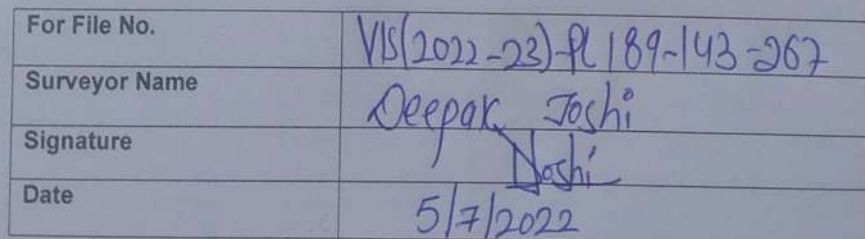 For File No. VIS(2022-23)-PL189-143-267
Surveyor Name Deepak Joshi
Signature Joshi
Date 5/7/2022